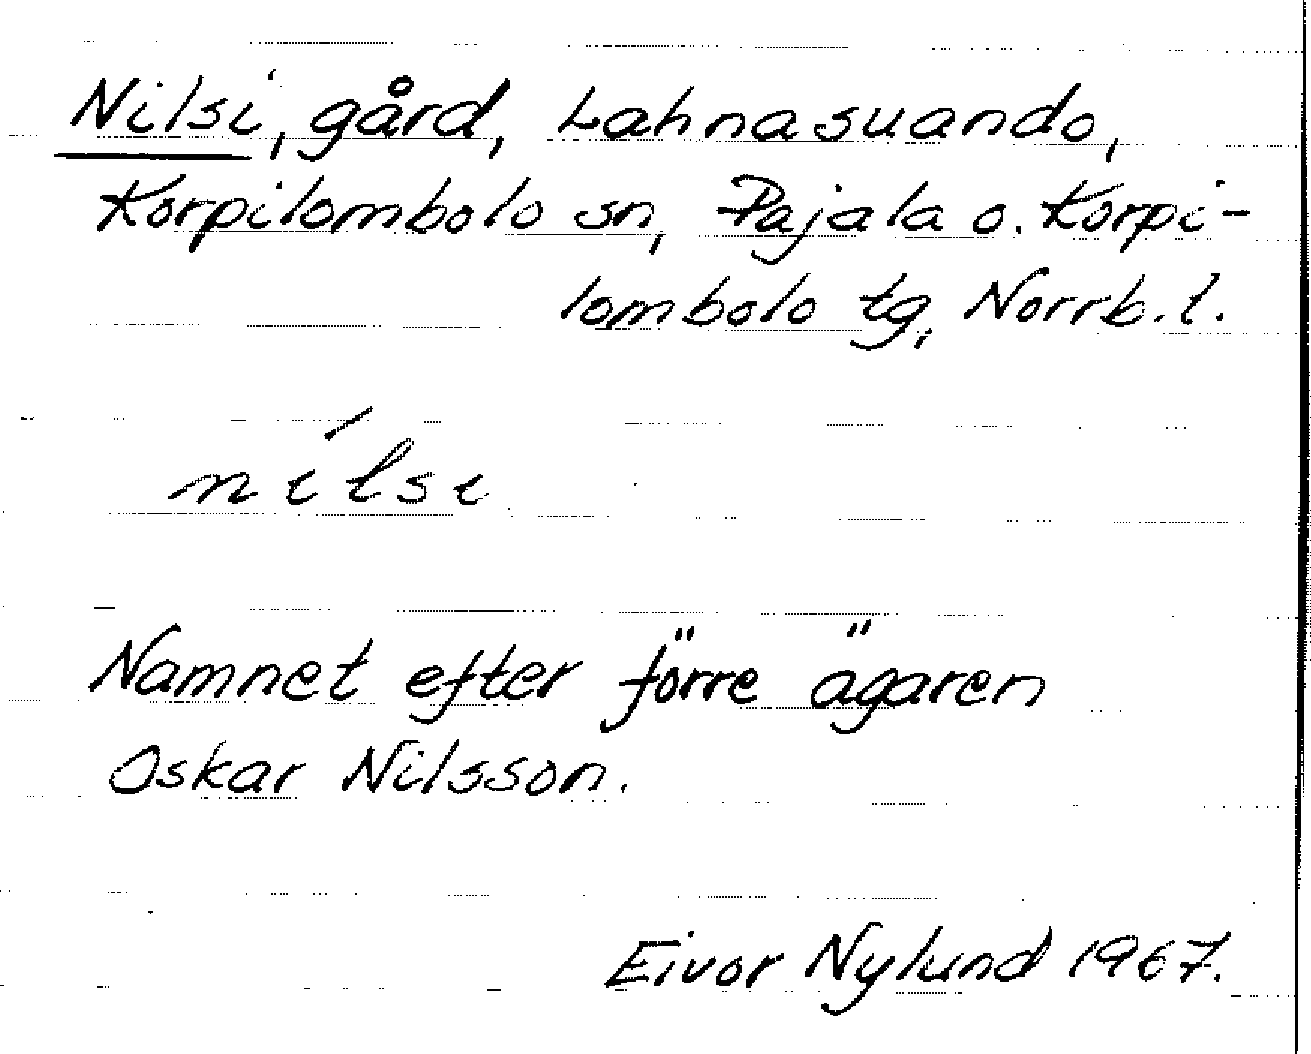 Nilsi, gård, Lahnasuando,
Korpilombolo sn, Pajala o. Korpi-
lombolo tg, Norrb. l.
nílsi
Namnet efter förre ägaren
Oskar Nilsson.
Eivor Nylund 1967.